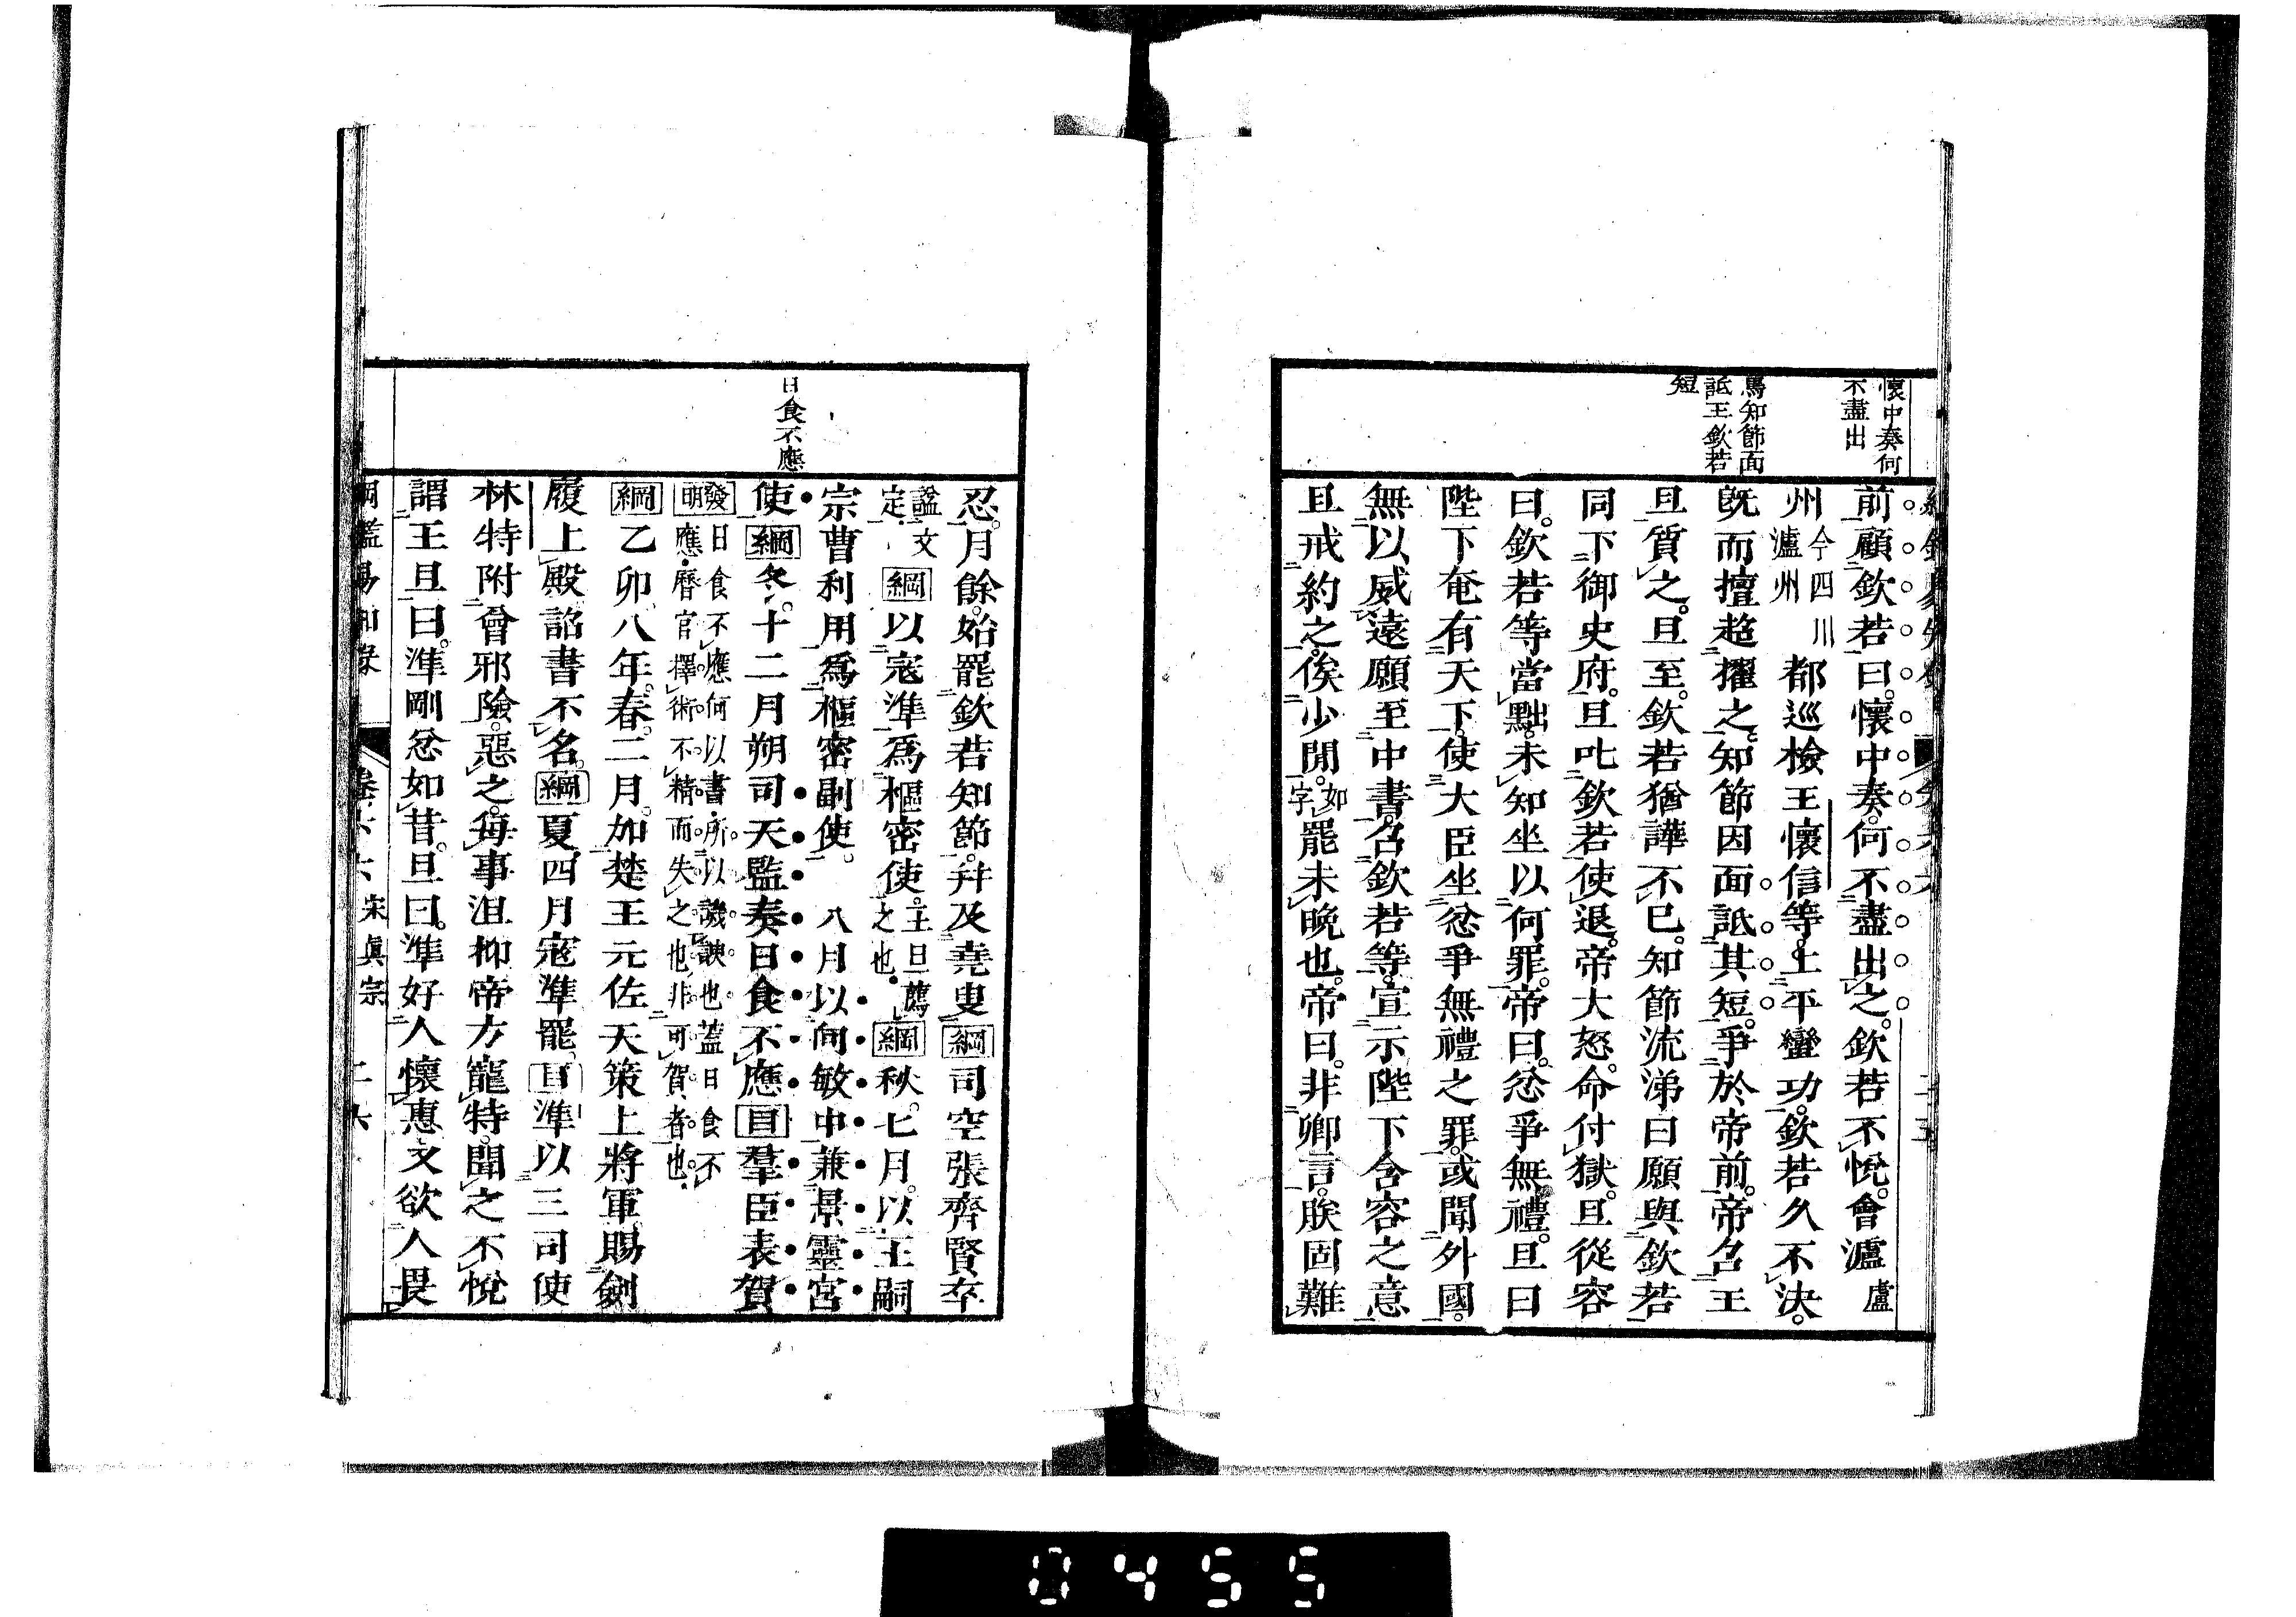 懷中奏何
不盡出
馬知節面
詆王欽若
短
前顧欽若曰懷中奏何不盡出之欽若不悅會瀘盧
州今四川瀘州都巡檢王懷信等上平蠻功欽若久不決
旣而擅超擢之知節因面詆其短爭於帝前帝名王
旦質之旦至欽若猶譁不已知節流涕曰願與欽若
同下御史府旦叱欽若使退帝大怒命付獄旦從容
曰欽若等當黜未知坐以何罪帝曰忿爭無禮旦曰
陛下奄有天下使大臣坐忿爭無禮之罪或聞外國
無以威遠願至中書名欽若等宣示陛下含容之意
且戒約之俟少閒如字罷未晚也帝曰非卿言朕固難
日食不應
忍月餘始罷欽若知節幷及堯叟綱司空張齊賢卒
諡文定綱以寇準爲樞密使王旦薦之也綱秋七月以王嗣
宗曹利用爲樞密副使 八月以向敏中兼景靈宮
使綱冬十二月朔司天監奏日食不應目羣臣表賀
發明日食不應何以書所以譏諛也蓋日食不
應曆官擇術不精而失之也非可賀者也
綱乙卯八年春二月加楚王元佐天策上將軍賜劍
履上殿詔書不名綱夏四月寇準罷目準以三司使
林特附會邪險惡之每事沮抑帝方寵特聞之不悅
謂王旦曰準剛忿如昔旦曰準好人懷惠又欲人畏
綱鑑易知錄 卷六六 宋眞宗 二六
0455